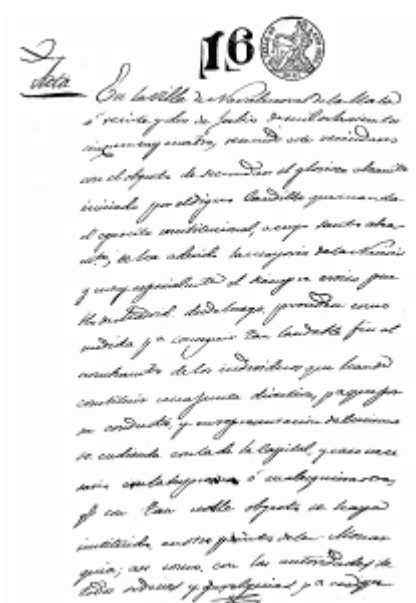 16
Acta
En la Villa de Navalmoral de la Mata
á veinte y dos de Julio de mil ochocientos
cincuenta y cuatro, reunido este vecindario
con el objeto de secundar el glorioso alzamiento
iniciado por el digno Caudillo que manda
el egercito constitucional, a cuyo santo
se ha la mayoria de la Nacion
y muy el siempre
de Madrid. desde luego, como
medida pa conseguir tan laudable fin el
nombramiento de los individuos que han de
constituir una junta directiva, pa que por
su conducto, y en representacion del mismo
se entienda con la de la Capital, y caso nece
sario con la ó cualquiera otra,
qe con tan noble objeto se haya
instituido, en otro punto de la Monar
quia; asi como, con las autoridades de
todos ordenes y pa